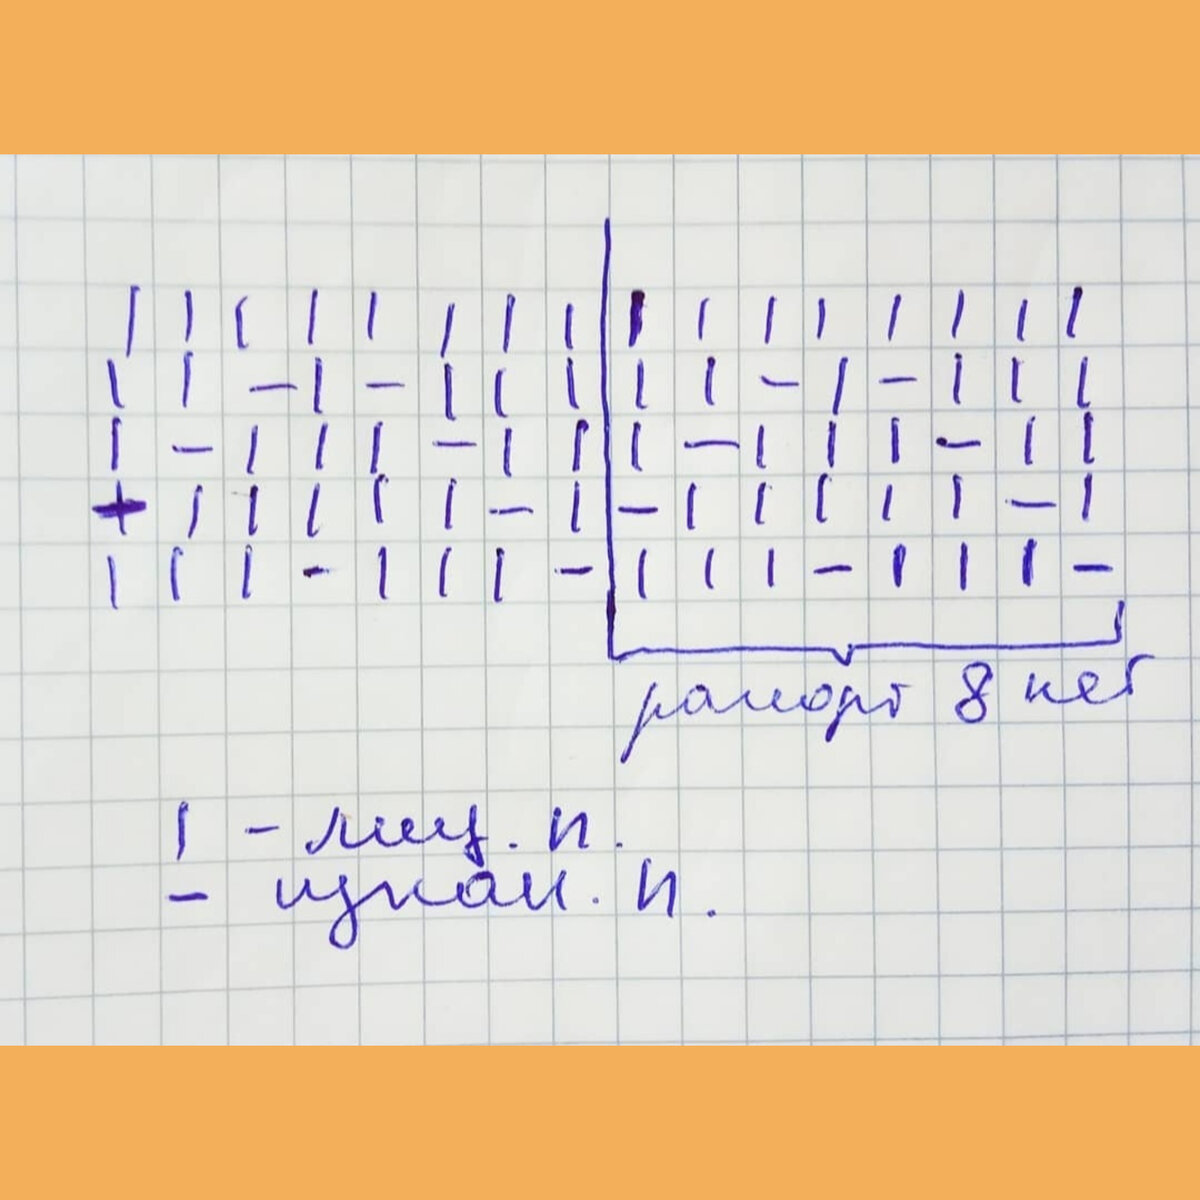 | | | | | | | | | | | | | | | |
| | — | — | | | | | — | — | | |
| — | | | — | | | — | | | — | |
+ | | | | | — | — | | | | | — |
| | | — | | | — | | | — | | | —
рапорт 8 пет
| — лиц. п.
— изнан. п.